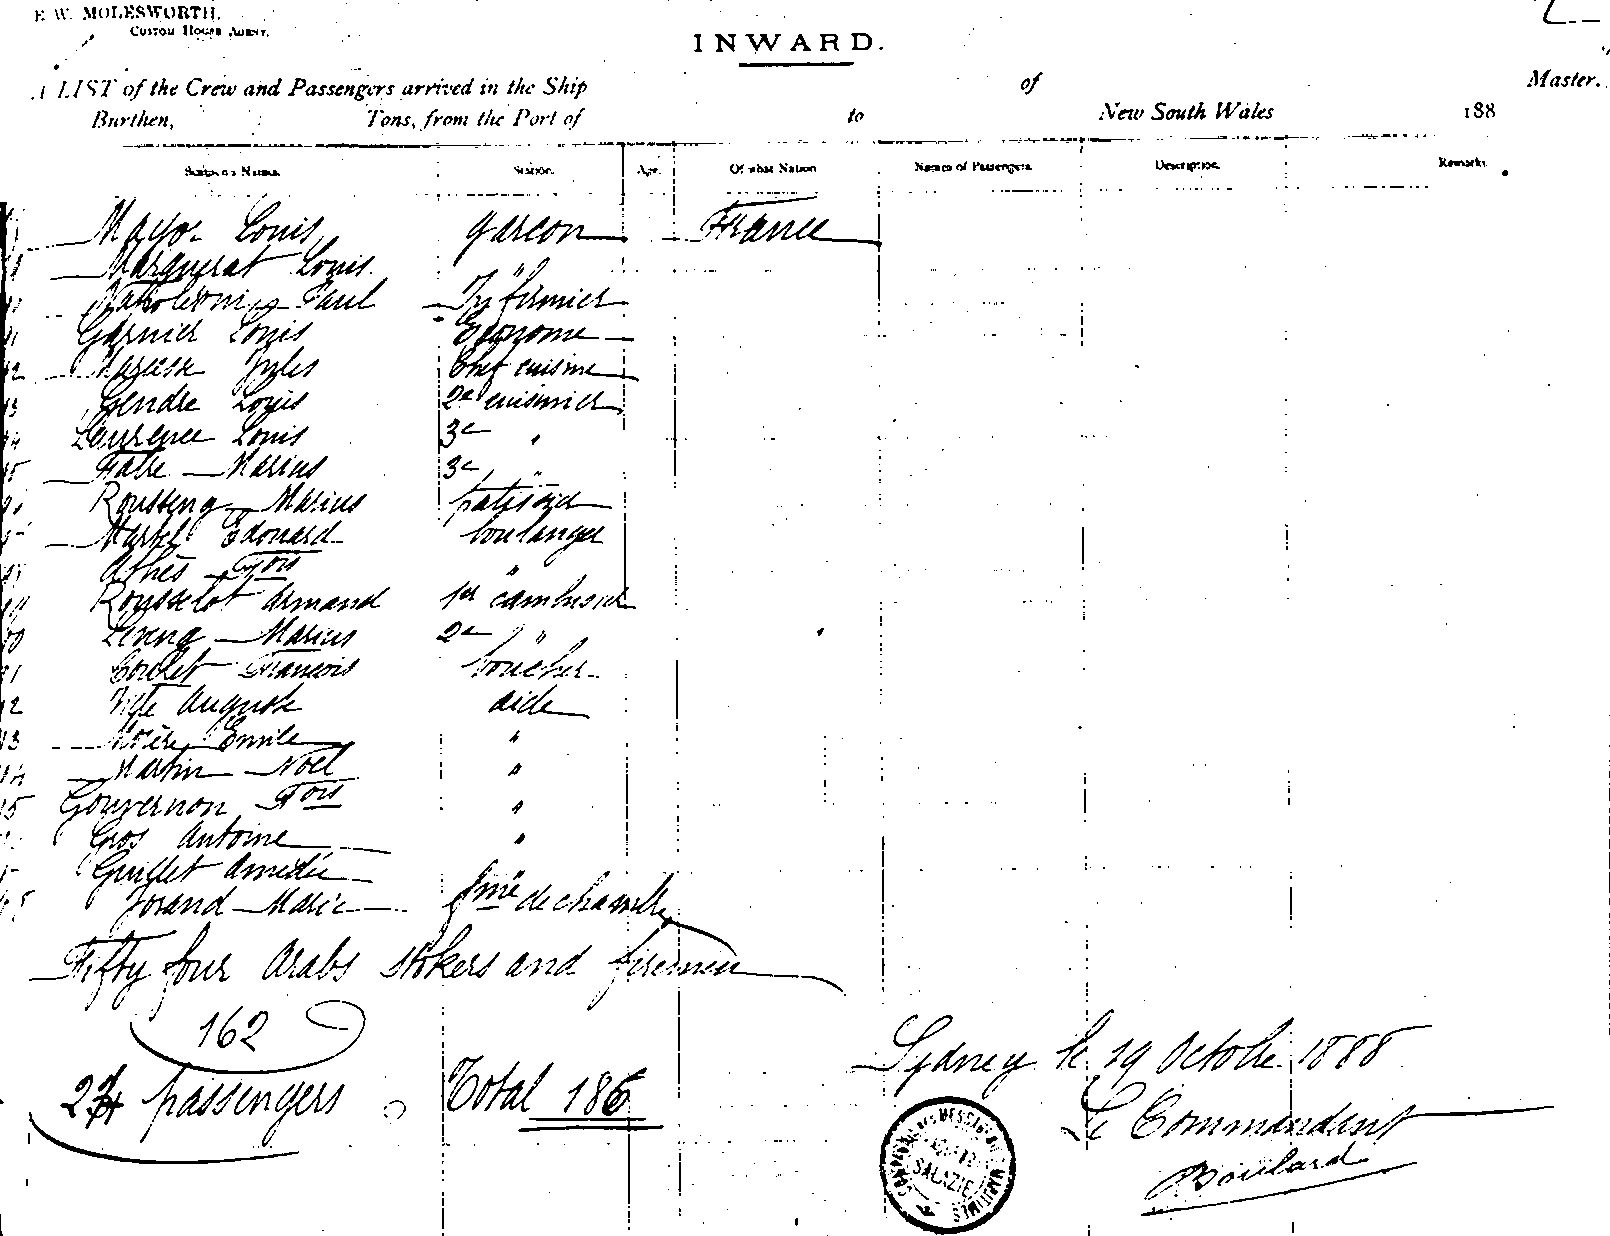 E. W. MOLESWORTH.
CUSTOM HOUSE AGENT.
INWARD.
A LIST of the Crew and Passengers arrived in the Ship of Master.
Burthen, Tons, from the Port of to New South Wales 188
Seamen's Names. Station. Age. Of what Nation Names of Passengers. Description. Remarks.
Louis garcon France
Marguerat Louis "
Paul Infirmier
Garnier Louis Econome
Jules Chef cuisine
Gendre Louis 2e cuisinier
Laurence Louis 3e "
Fabre Marius 3e "
Rousseng Marius patissier
Martel Edouard boulanger
Athès Fois "
Rousselot Armand 1er cambusier
Marius 2e "
Goulet Francois boucher
Auguste aide
Emile "
Martin Noël "
Gouvernon Fois "
Gros Antoine "
Guillet Amédée "
Jorand Marie fme de chambre
Fifty four Arabs stokers and firemen
162
Sydney le 19 Octobre 1888
24 passengers Total 186
Le Commandant
Boulard
MESSAGERIES MARITIMES
SALAZIE